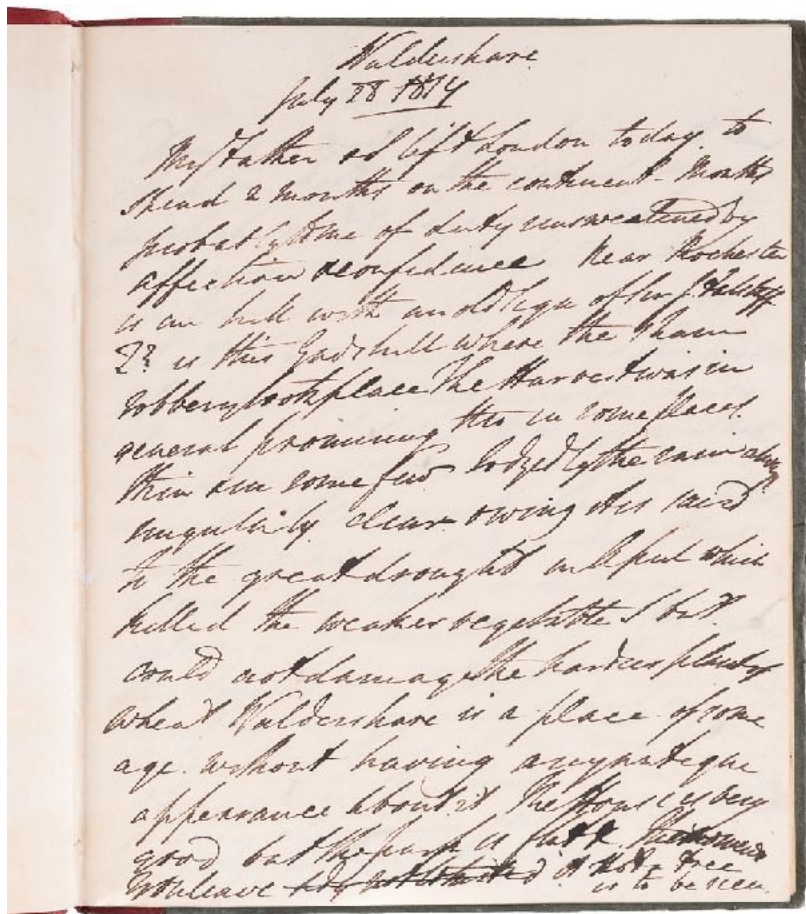 Waldershare
July 28 1874
My Father & I left London today to
spend 2 months on the continent - Months
probably to me of duty unsweetened by
affection & confidence Near Rochester
is an hill with an old sign of Sir J. Falstaff
2? is this Gadshill where the sham
robbery took place The Harvest was in
general promising tho in some places
thin an some few lodged by the rain
singularly clear owing it is said
to the great drought in April which
killed the weaker vegetables but
could not damage the hardier plant of
wheat Waldershare is a place of some
age without having any antique
appearance about it The House is very
good but the park is
you leave it not a tree
is to be seen